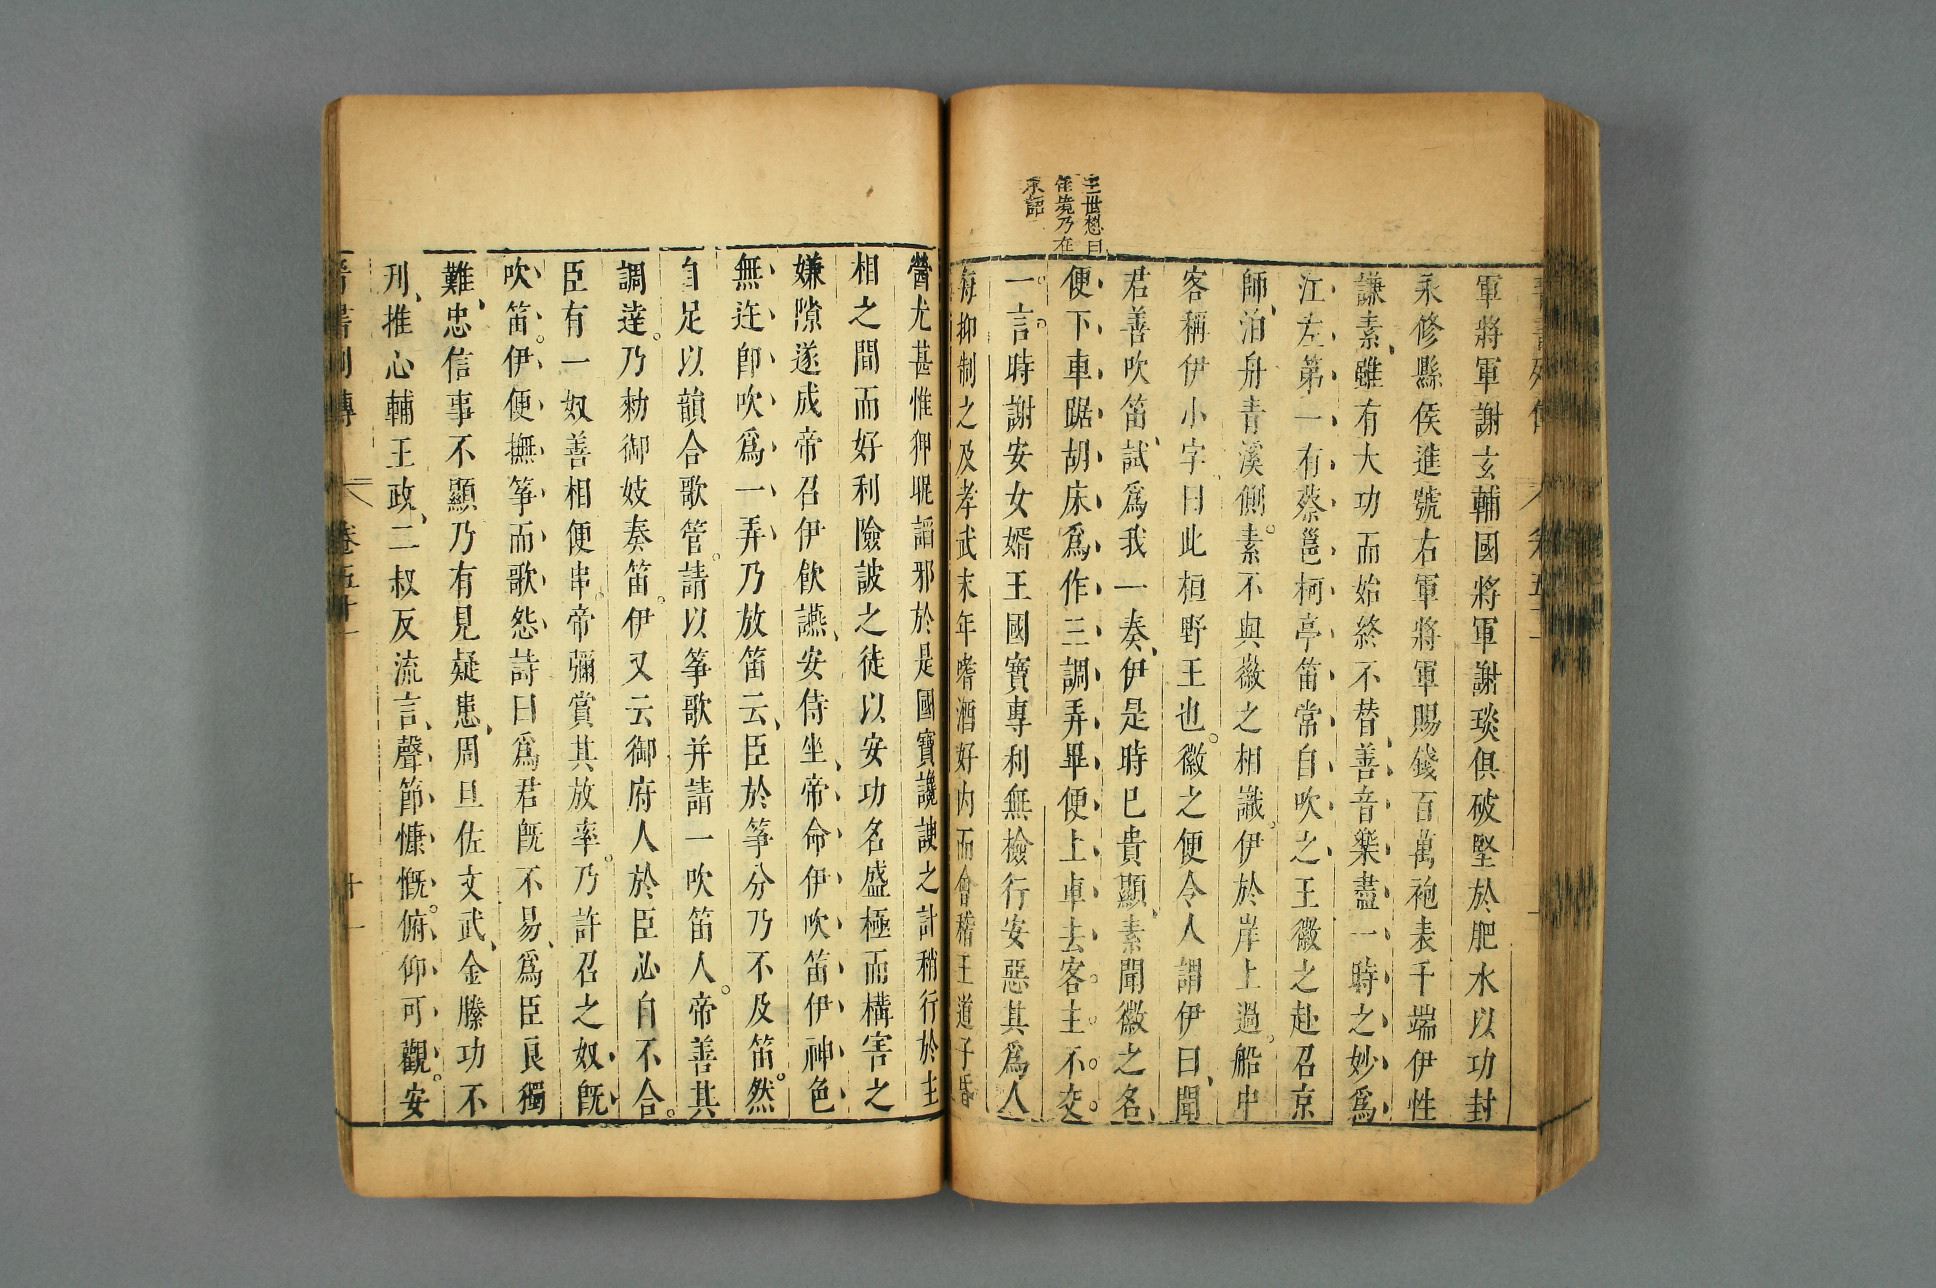 王世懋曰
佳境乃在
不語
軍將軍謝玄輔國將軍謝琰俱破堅於肥水以功封
永修縣侯進號右軍將軍賜錢百萬袍表千端伊性
謙素、雖有大功而始終不替、善音樂盡一時之妙爲
江左第一有蔡邕柯亭笛常自吹之王徽之赴召京
師、泊舟青溪側。素不與徽之相識。伊於岸上過。船中
客稱伊小字曰此桓野王也。徽之便令人謂伊曰、聞
君善吹笛、試爲我一奏、伊是時已貴顯、素聞徽之名、
便下車踞胡床爲作三調弄畢便上車去客。主。不。交。
一。言。時謝安女婿王國寶專利無檢行安惡其爲人
每抑制之及孝武末年嗜酒好內而會稽王道子昏
醟尤甚惟狎昵諂邪於是國寶讒諛之計稍行於主
相之間而好利險詖之徒以安功名盛極而構害之
嫌隙遂成帝召伊飲讌、安侍坐、帝命伊吹笛伊神色
無迕卽吹爲一弄乃放笛云、臣於箏分乃不及笛。然
自足以韻合歌管。請以箏歌并請一吹笛人。帝善其
調達。乃勑御妓奏笛。伊又云御府人於臣必自不合。
臣有一奴善相便串。帝彌賞其放率。乃許召之奴旣
吹笛。伊便撫箏而歌怨詩曰爲君旣不易、爲臣良獨
難、忠信事不顯乃有見疑患、周旦佐文武、金縢功不
刋、推心輔王政、二叔反流言、聲節慷慨。俯仰可觀。安
晉書列傳
卷五十一
十一